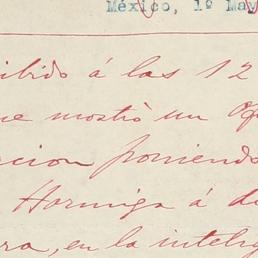 México, 1º May
cibido á las 12
ue mostró un Of
ccion poniendo
Hormiga á d
ra, en la intelig